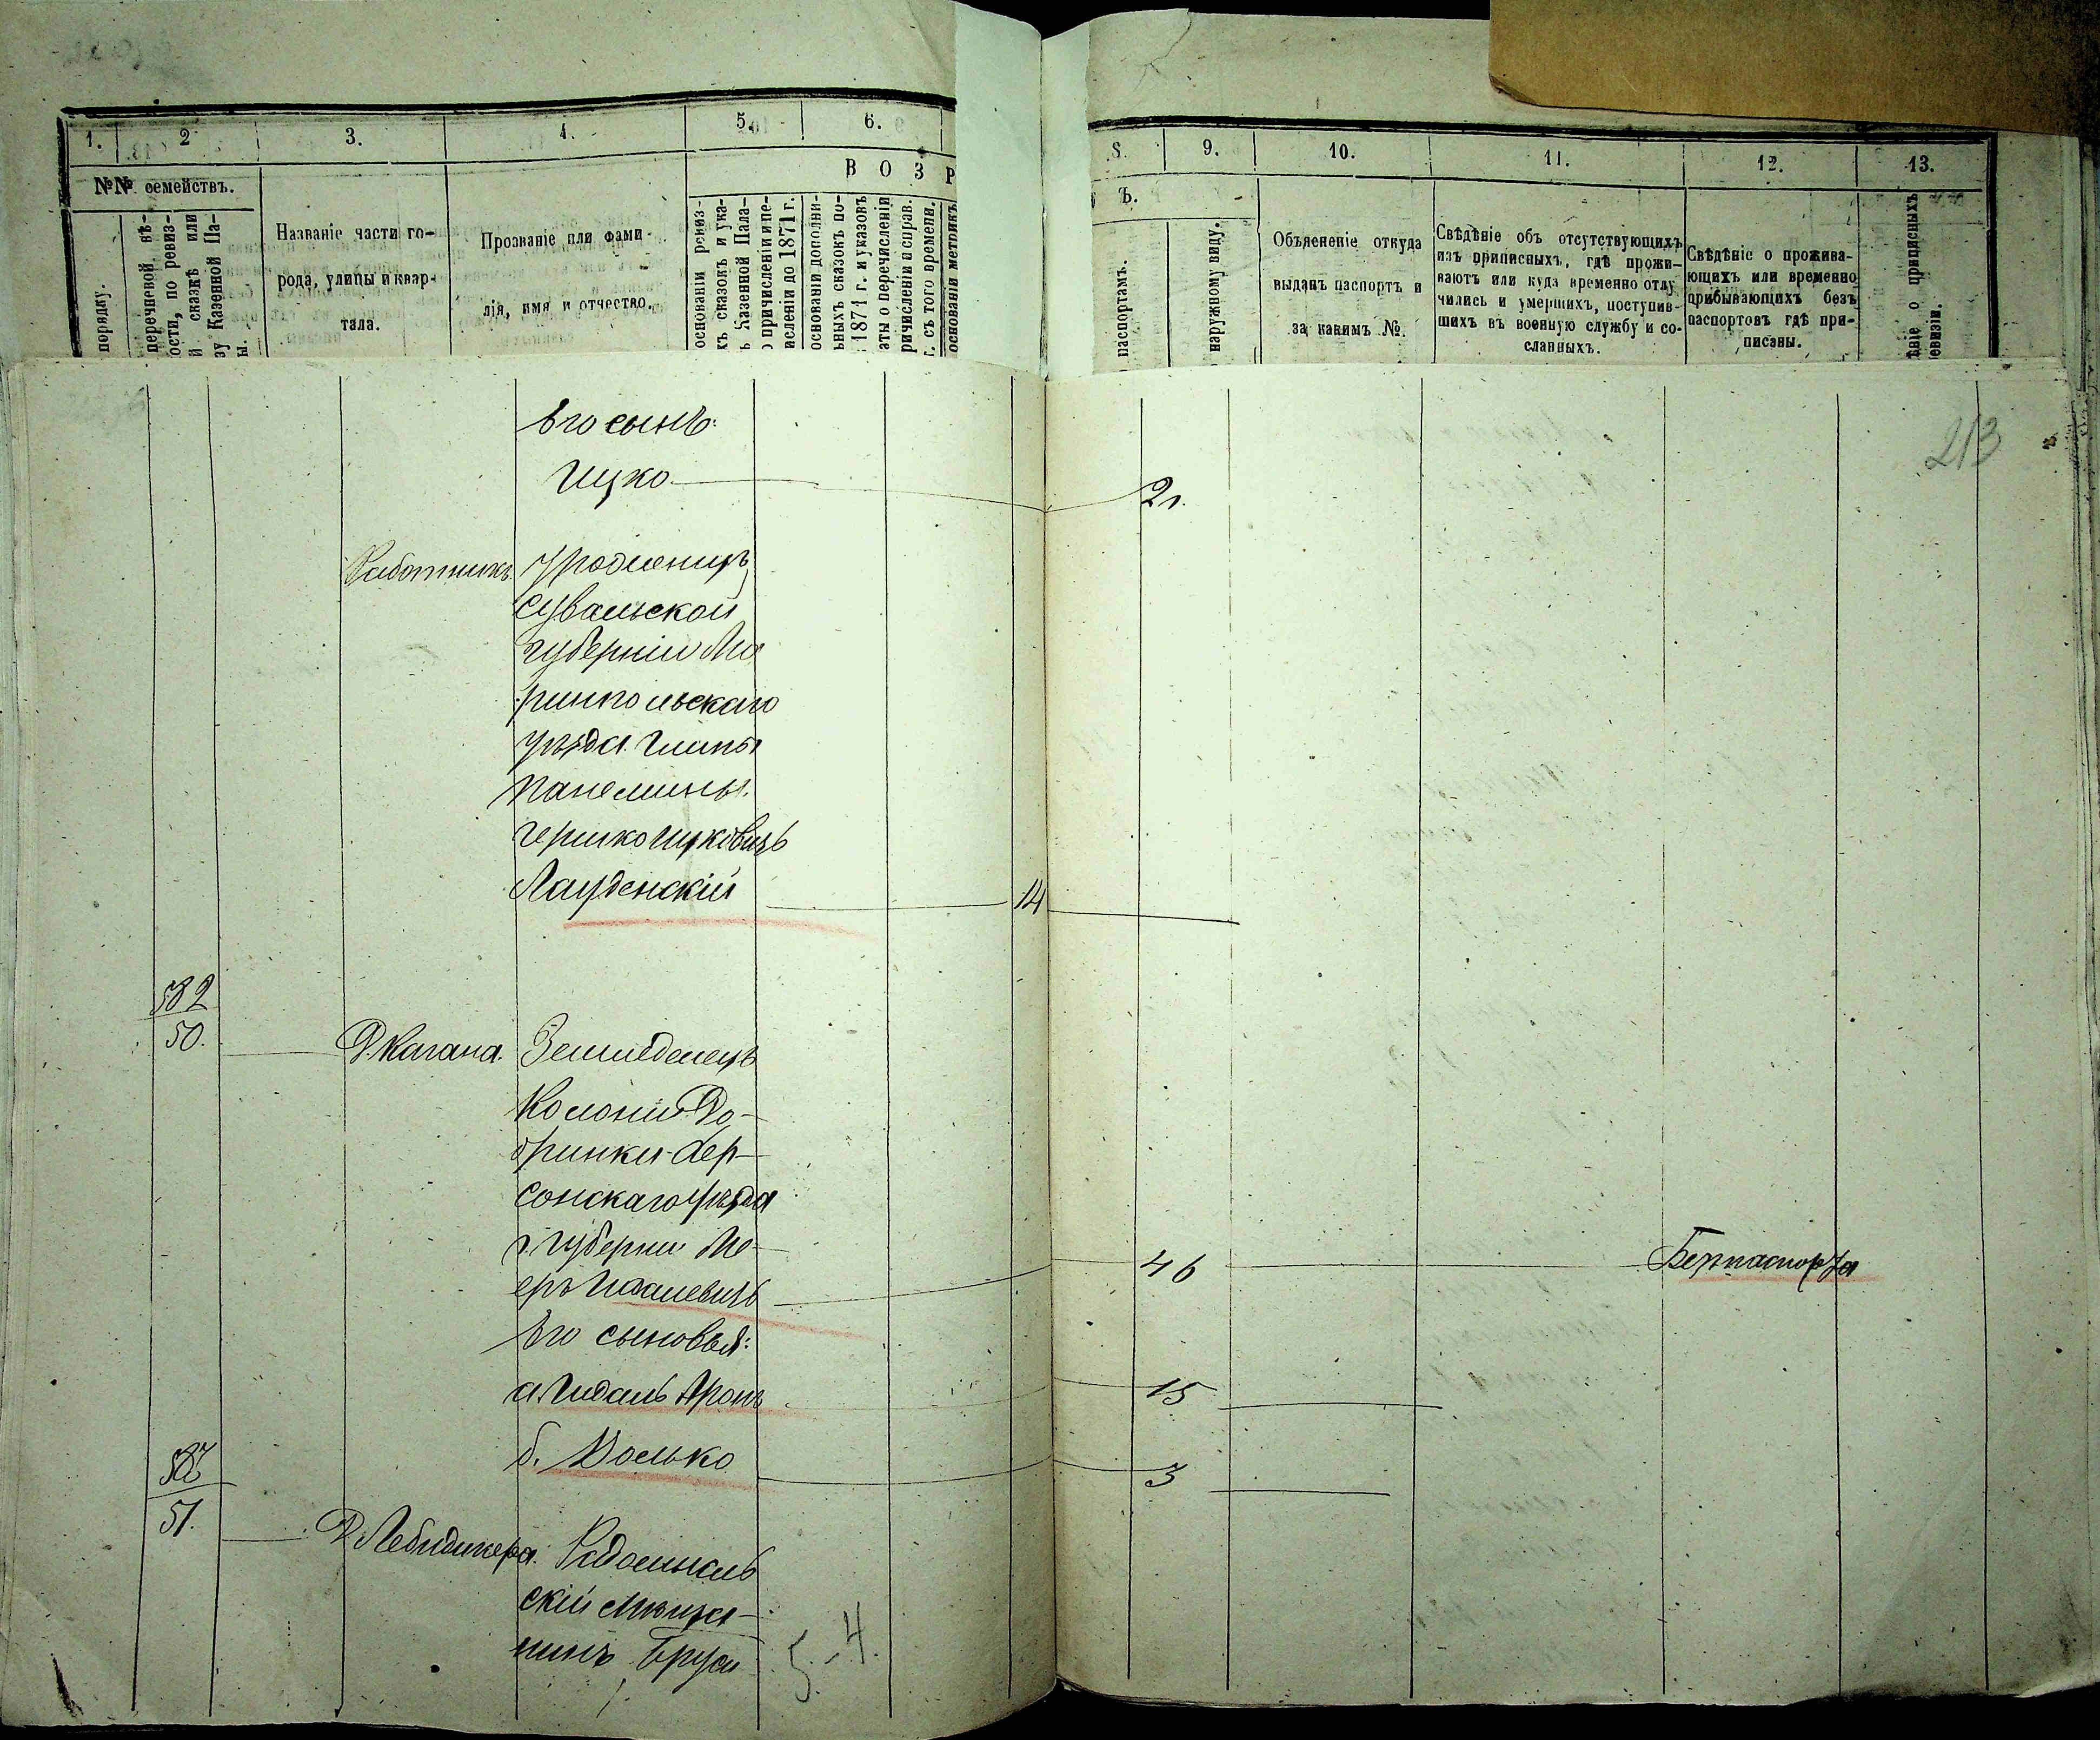 1. 2 3. 4. 5. 6.
№№ семействъ.
В О З Р
порядку.
перечневой вѣ-
ости, по ревиз-
й сказкѣ или
зу Казенной Па-
ы.
Названіе части го-
рода, улицы и квар-
тала.
Прозваніе или фами-
лія, имя и отчество.
основаніи ревиз-
хъ сказокъ и ука-
ъ Казенной Пала-
о причисленіи и пе-
исленіи до 1871 г.
основаніи дополни-
ьныхъ сказокъ по-
1871 г. и указовъ
аты о перечисленіи
ричисленіи и справ.
г. съ того времени.
основаніи метрикъ
8. 9. 10. 11. 12. 13.
Ъ.
паспортамъ.
наружному виду.
Объясненіе откуда
выданъ паспортъ и
за какимъ №.
Свѣдѣніе объ отсутствующихъ
изъ приписныхъ, гдѣ прожи-
ваютъ или куда временно отлу
чились и умершихъ, поступив-
шихъ въ военную службу и со-
сланныхъ.
Свѣдѣніе о прожива-
ющихъ или временно
прибывающихъ безъ
паспортовъ гдѣ при-
писаны.
ѣніе о приписныхъ
евизіи.
213
Его сынъ:
Ицко 2 г.
Работникъ Уроженецъ
Сувальской
губерніи Ма
ріинпольскаго
уѣзда Гмины
Панемуны
Гершко Ицковичъ
Лауденскій 14
582
50. Д. Кагана. Земледелецъ
Колоніи До-
бринки Хер-
сонскаго уѣзда
и губерни Ме-
еръ 46 Безпаспорта
Его сыновья:
а. Гидаль Аронъ 15
б. Волько 3
51. Д. Лебидикера. Радомысль
скій мѣща-
нинъ
5-4.